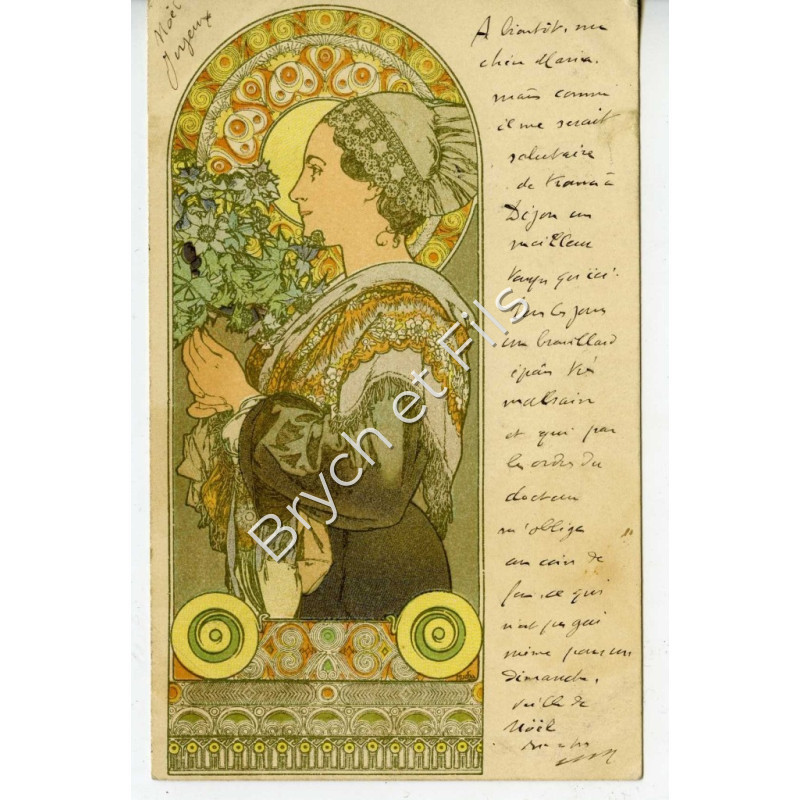 Noël
Joyeux
A bientôt, ma
chère Maria,
mais comme
il me serait
salutaire
de trouver à
Dijon un
meilleur
temps qu'ici.
Tous les jours
un brouillard
épais très
malsain
et qui par
les ordres du
docteur
m'oblige
au coin de
feu, ce qui
n'est pas gai
même pour un
dimanche,
veille de
Noël
Brych et Fils